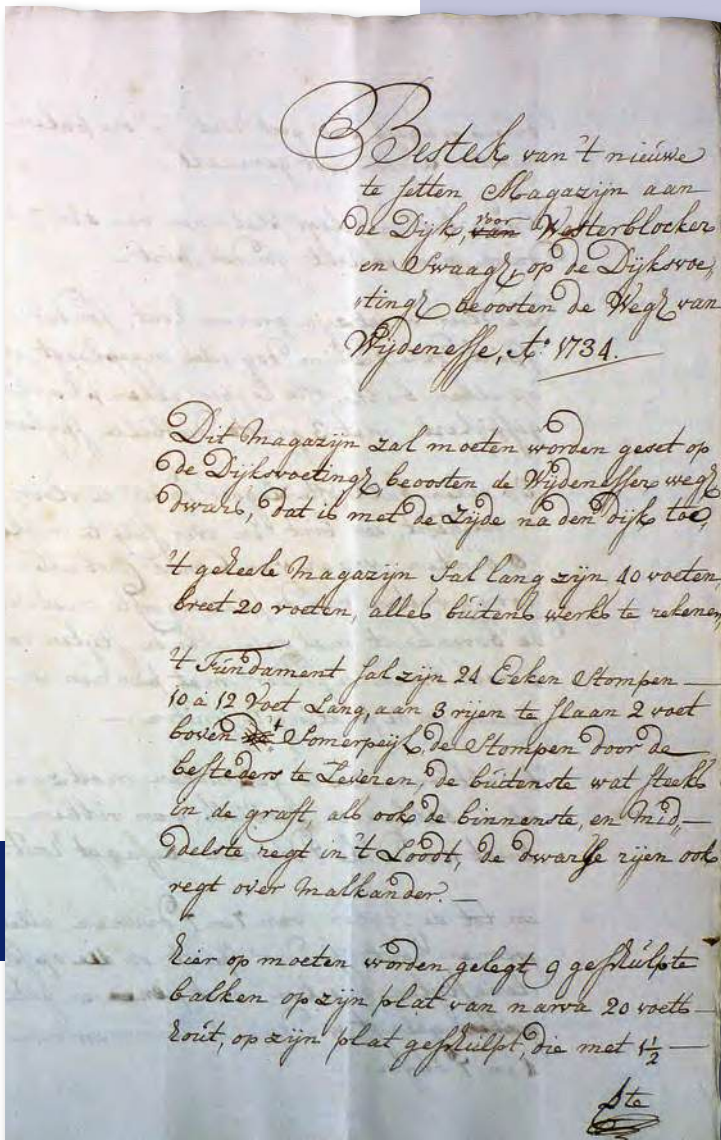 Bestek van 't nieuwe
te setten Magazijn aan
de Dijk, van voor Westerblocker
en Swaag, op de Dijksvoe„
„ting beoosten de Weg van
Wijdenesse, Ao 1734.
Dit magazijn zal moeten worden geset op
de Dijksvoeting, beoosten de Wijdenesser weg
dwars, dat is met de zijde na den dijk toe,
't geheele magazijn sal lang zijn 40 voeten,
breet 20 voeten, alles buitens werks te rekenen,
't Fundament sal zijn 24 Eeken Stompen —
10 à 12 Voet Lang, aan 3 rijen te slaan 2 voet
boven 't Somerpeijl, de Stompen door de
besteders te Leveren, de buitenste wat steeks
in de graft, als ook de binnenste, en mid„
„delste regt in 't Loodt, de dwarsse rijen ook
regt over malkander. —
hier op moeten worden gelegt 9 geschulpte
balken op zijn plat van narva 20 voets —
hout, op zijn plat geschulpt, die met 1½ —
ste